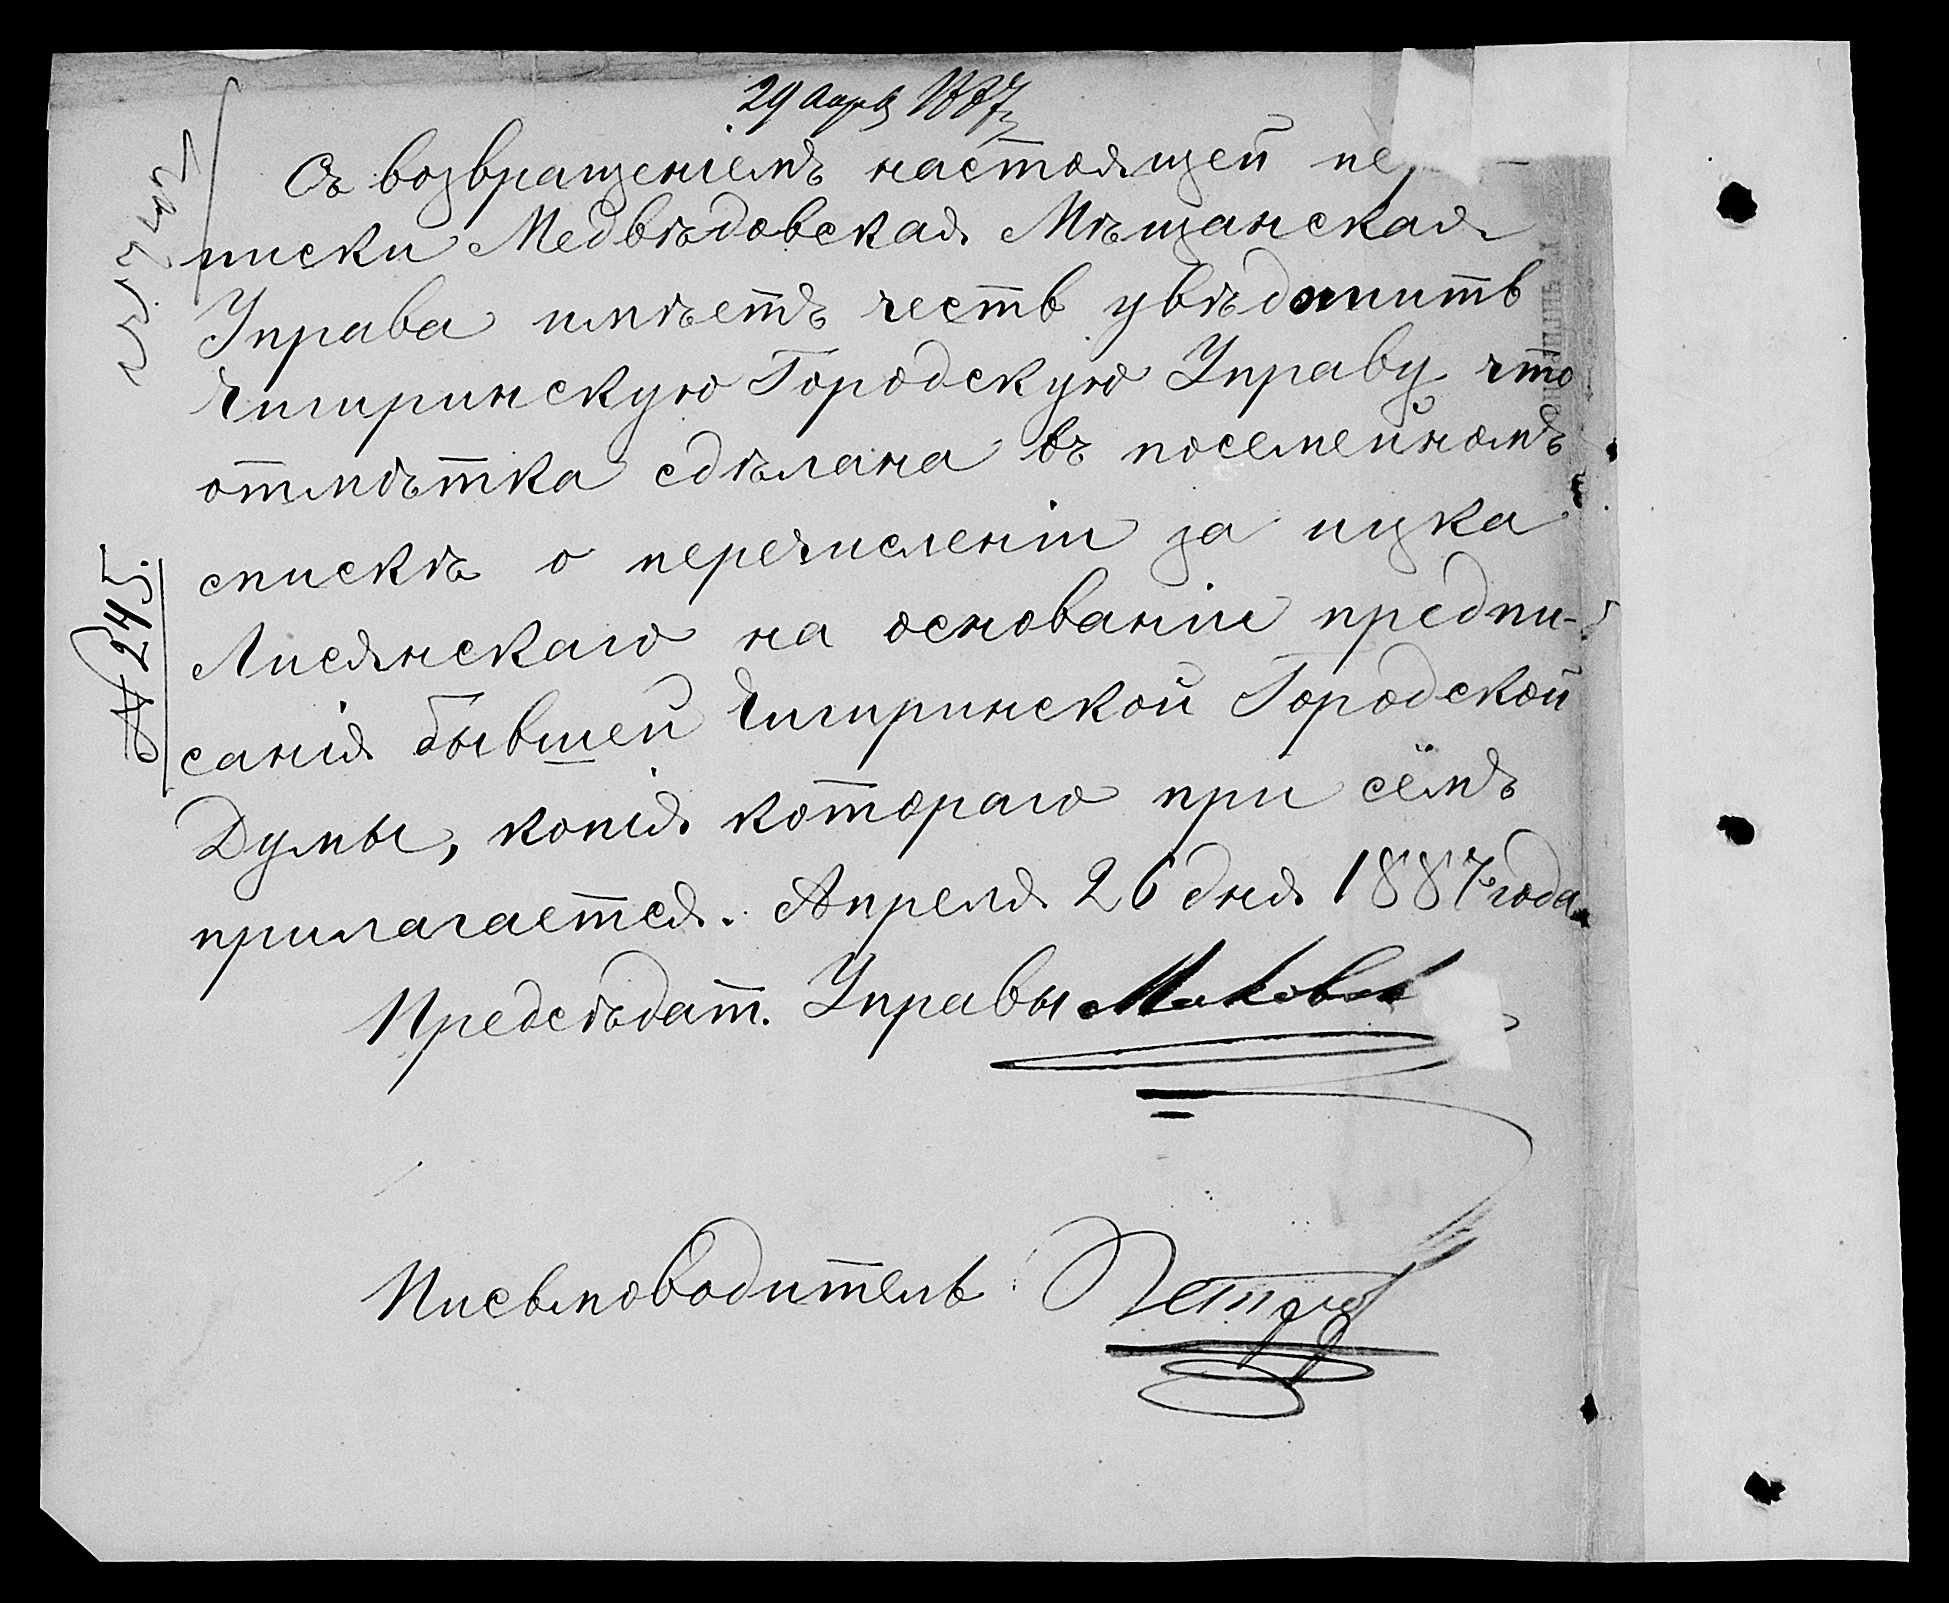 29 Апрѣ 1887
Съ возвращеніемъ настоящей пе
писки Медвѣдовская Мѣщанская
Управа имѣетъ честь увѣдомить
Чигиринскую Городскую Управу что
отмѣтка сдѣлана въ посемейномъ
спискѣ о перечисленіи за ицка
Лисянскаго на основаніи предпи-
санія бывшей Чигиринской Городской
Думы, копія котораго при сёмъ
прилагается. Апреля 26 дня 1887 года
Предсѣдат. Управы
Письмоводитель Петров
№ 245.